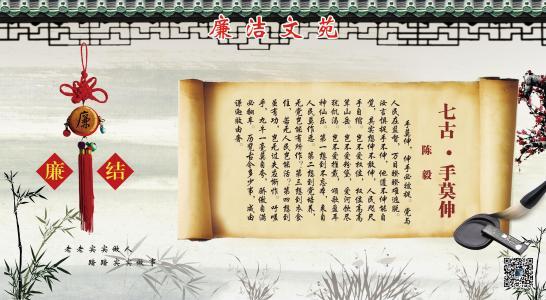 廉洁文苑
廉
廉
结
七古·手莫伸
陈毅
手莫伸，伸手必被捉。党与
人民在监督，万目睽睽难逃脱。
汝言惧捉手不伸，他道不伸能自
觉，其实想伸不敢伸，人民咫尺
手自缩。岂不爱权位，权位高高
耸山岳。岂不爱粉黛，爱河饮尽
犹饥渴。岂不爱推戴，颂歌盈耳
神仙乐。第一想到不忘本，来自
人民莫作恶。第二想到党培养，
无党岂能有所作？第三想到衣食
住，若无人民岂能活？第四想到
虽有功，岂无过失应惭怍。吁嗟
乎，九牛一毫莫自夸，骄傲自满
必翻车。历览古今多少事，成由
谦逊败由奢。
老老实实做人
踏踏实实做事